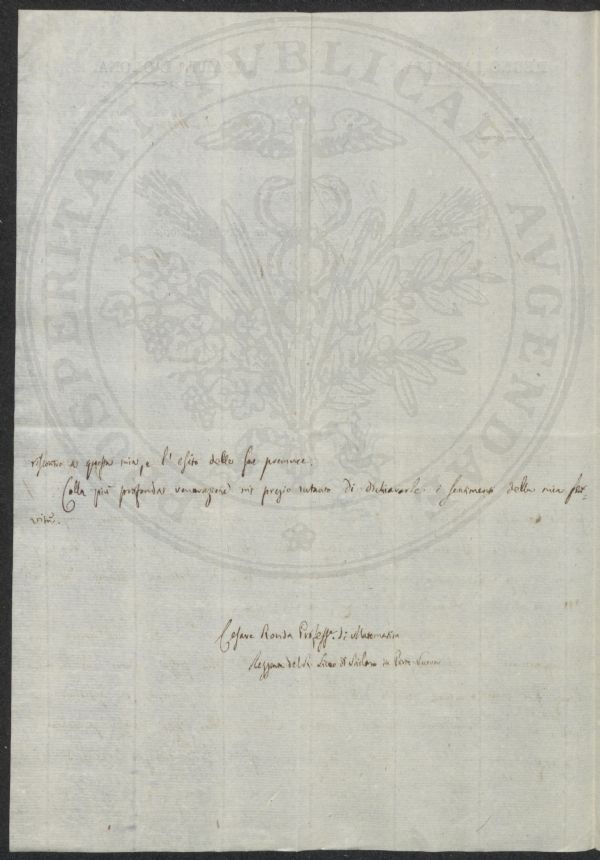 PROSPERITATI PVBLICAE AVGENDAE
riscontro a questa mia, e l'esito delle sue premure.
Colla più profonda venerazione mi pregio intanto di dichiararle i sentimenti della mia ser-
vitù.
Cesare Rovida Professr. di Matematica
Reggente del R. Liceo di Milano in Porta Nuova